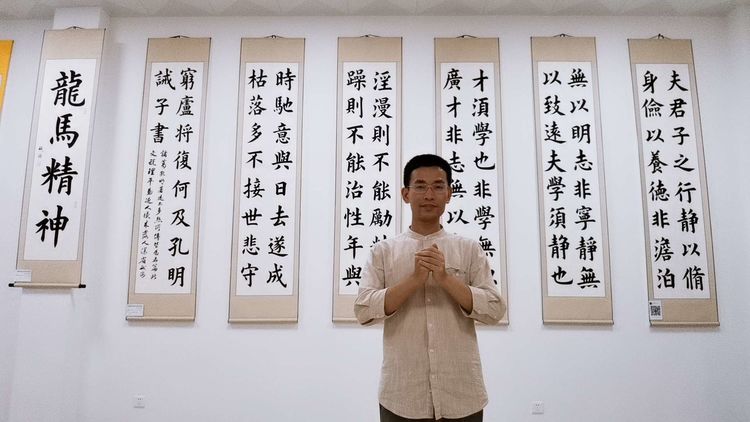 夫君子之行静以脩
身儉以養德非澹泊
無以明志非寧静無
以致遠夫學須静也
才湏學也非學無
廣才非志無以
淫漫則不能勵
躁則不能治性年與
時馳意與日去遂成
枯落多不接世悲守
窮廬將復何及孔明
誡子書
龍馬精神